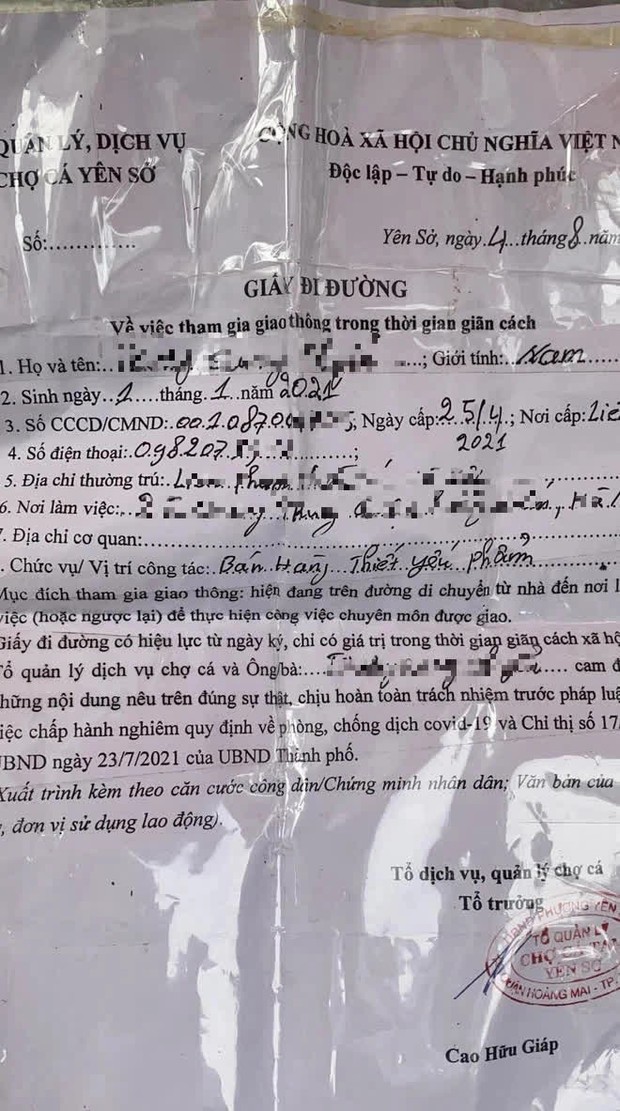 QUẢN LÝ, DỊCH VỤ
CHỢ CÁ YÊN SỞ
CỘNG HOÀ XÃ HỘI CHỦ NGHĨA VIỆT N
Độc lập – Tự do – Hạnh phúc
Số:..............
Yên Sở, ngày.4...tháng8..năm
GIẤY ĐI ĐƯỜNG
Về việc tham gia giao thông trong thời gian giãn cách
1. Họ và tên:.. ...; Giới tính:..Nam......
2. Sinh ngày..1....tháng.1..năm 2021
3. Số CCCD/CMND:.001.0870 ; Ngày cấp:.25/4.; Nơi cấp:
2021
4. Số điện thoại:.098207 ;
5. Địa chỉ thường trú:..
6. Nơi làm việc:..
7. Địa chỉ cơ quan:
. Chức vụ/ Vị trí công tác:..Bán Hàng Thiết yếu phẩm
Mục đích tham gia giao thông: hiện đang trên đường di chuyển từ nhà đến nơi l
việc (hoặc ngược lại) để thực hiện công việc chuyên môn được giao.
Giấy đi đường có hiệu lực từ ngày ký, chỉ có giá trị trong thời gian giãn cách xã hộ
Tổ quản lý dịch vụ chợ cá và Ông/bà:.. .... cam đ
những nội dung nêu trên đúng sự thật, chịu hoàn toàn trách nhiệm trước pháp luậ
việc chấp hành nghiêm quy định về phòng, chống dịch covid-19 và Chỉ thị số 17/
UBND ngày 23/7/2021 của UBND Thành phố.
Xuất trình kèm theo căn cước công dân/Chứng minh nhân dân; Văn bản của
, đơn vị sử dụng lao động).
Tổ dịch vụ, quản lý chợ cá
Tổ trưởng
UBND PHƯỜNG YÊN
TỔ QUẢN LÝ
CHỢ CÁ
YÊN SỞ
QUẬN HOÀNG MAI - TP.
Cao Hữu Giáp